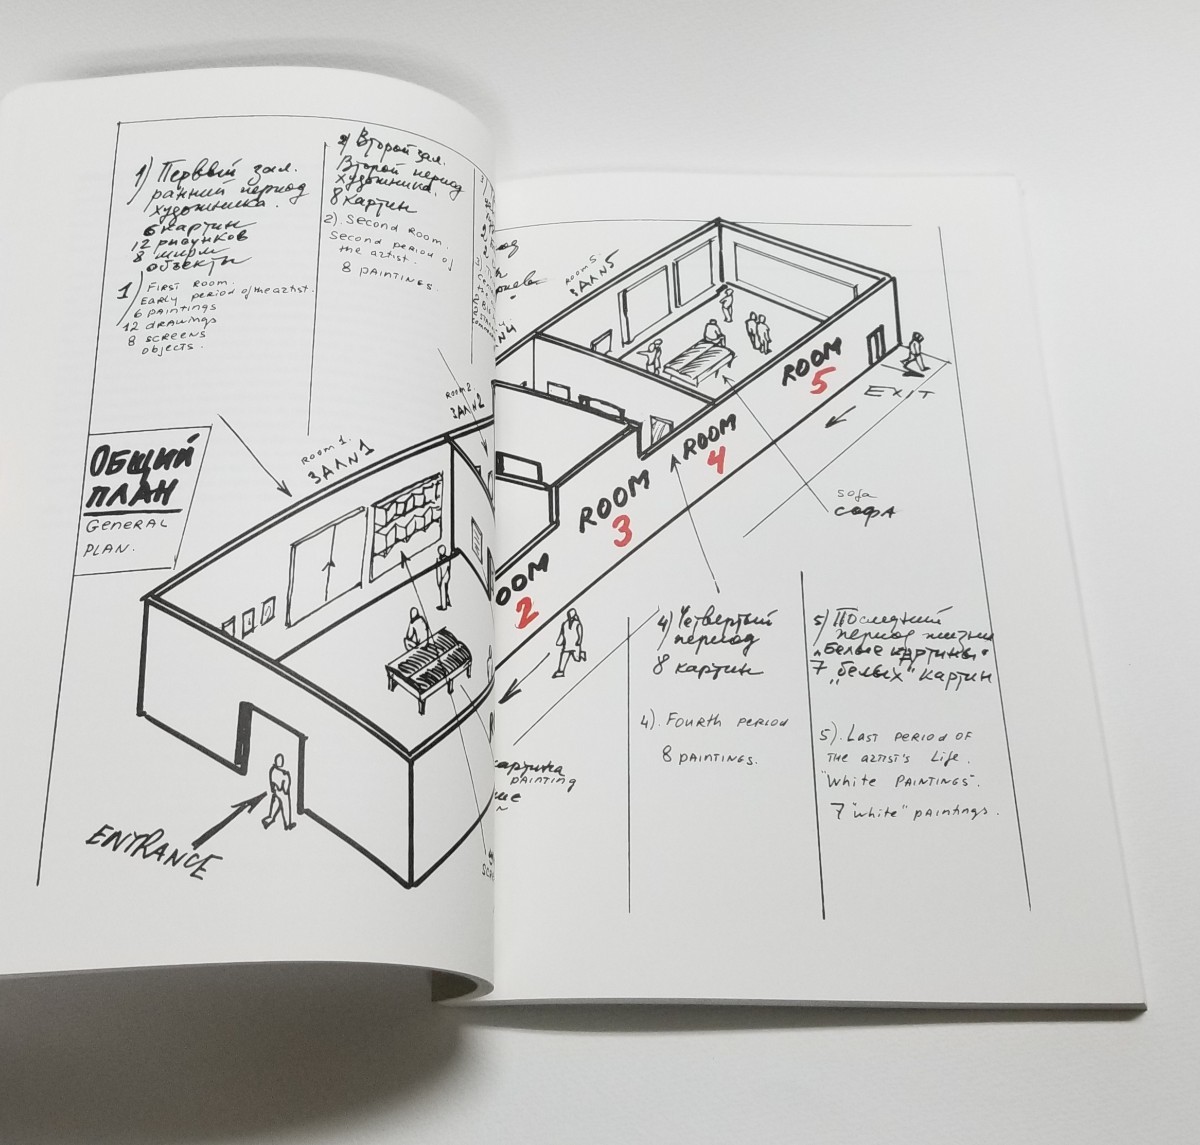 1) Первый зал.
ранний период
художника.
6 картин
12 рисунков
8 ширм
объекты
1) First Room.
Early period of the artist.
6 paintings
12 drawings
8 screens
objects.
2) Второй зал.
Второй период
художника.
8 картин
2) Second Room.
Second period of
the artist.
8 paintings.
3)
3)
ОБЩИЙ
ПЛАН
General
Plan.
Room 1.
ЗАЛ №1
Room 2.
ЗАЛ №2
№4
Room 5.
ЗАЛ №5
ROOM
5
ROOM
4
ROOM
3
OOM
2
EXIT
sofa
СОФА
ENTRANCE
картина
painting
4) Четвертый
период
8 картин
4). Fourth period
8 paintings.
5) Последний
период жизни
„Белые картины"
7 „белых" картин
5). Last period of
the artist's life.
"White paintings".
7 "white" paintings.